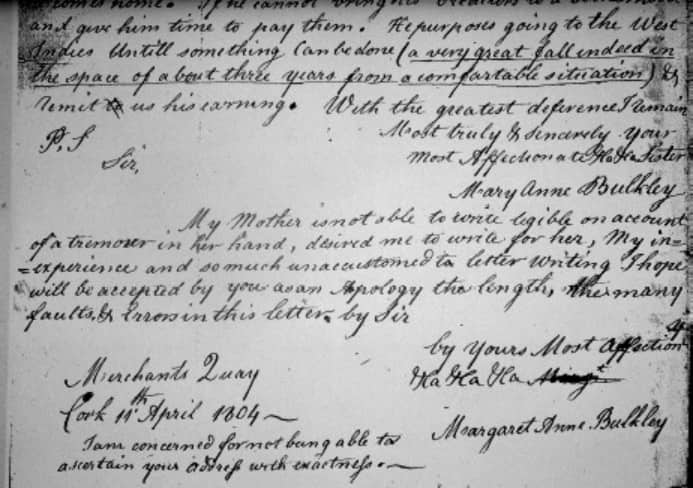 and give him time to pay them. He purposes going to the West
Indies Untill something Can be done (a very great fall indeed in
the space of about three years from a comfortable situation) &
remit to us his earning. With the greatest deference I remain
P.S
Most truly & Sincerely your
Sir,
most Affectionate &a &a Sister
Mary Anne Bulkley
My Mother is not able to write legible on account
of a tremour in her hand, desired me to write for her, My in=
=experience and so much unaccustomed to letter writing I hope
will be accepted by you as an Apology the length, the many
faults, & Errors in this letter. by Sir
by Yours Most Affection
&a &a &a
Merchants Quay
Cork 11th April 1804
Margaret Anne Bulkley
I am concerned for not being able to
ascertain your address with exactness.